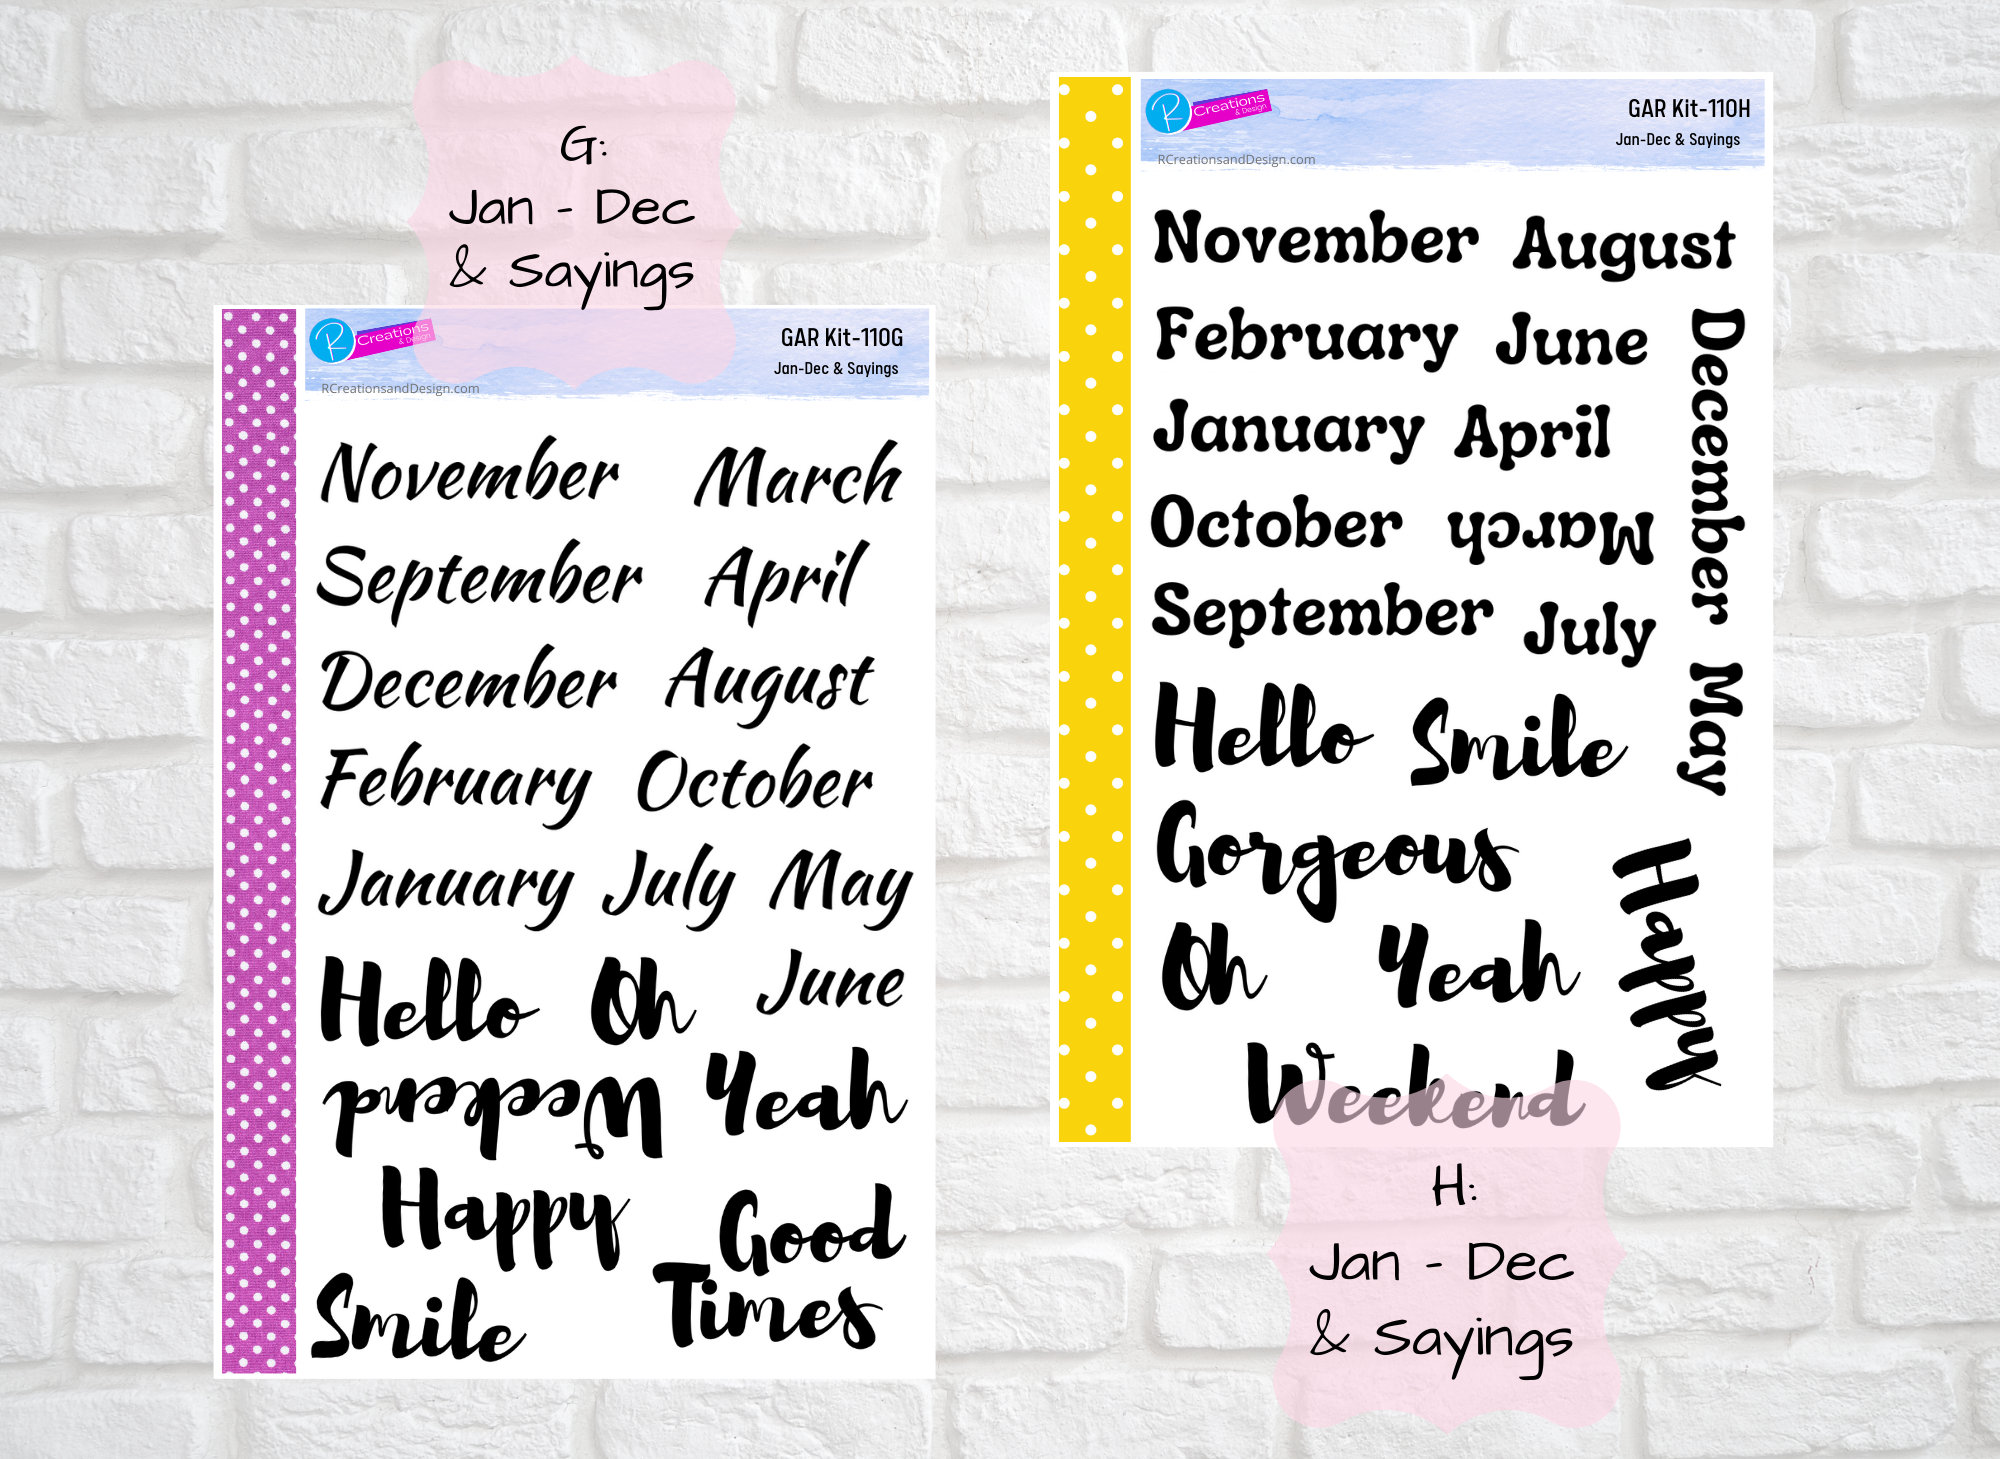 G:
Jan - Dec
& Sayings
R Creations
& Design
RCreationsandDesign.com
GAR Kit-110G
Jan-Dec & Sayings
November March
September April
December August
February October
January July May
Hello Oh June
Weekend Yeah
Happy Good
Smile Times
R Creations
& Design
RCreationsandDesign.com
GAR Kit-110H
Jan-Dec & Sayings
November August
February June
January April
October March
September July
December
May
Hello Smile
Gorgeous
Oh Yeah
Happy
Weekend
H:
Jan - Dec
& Sayings